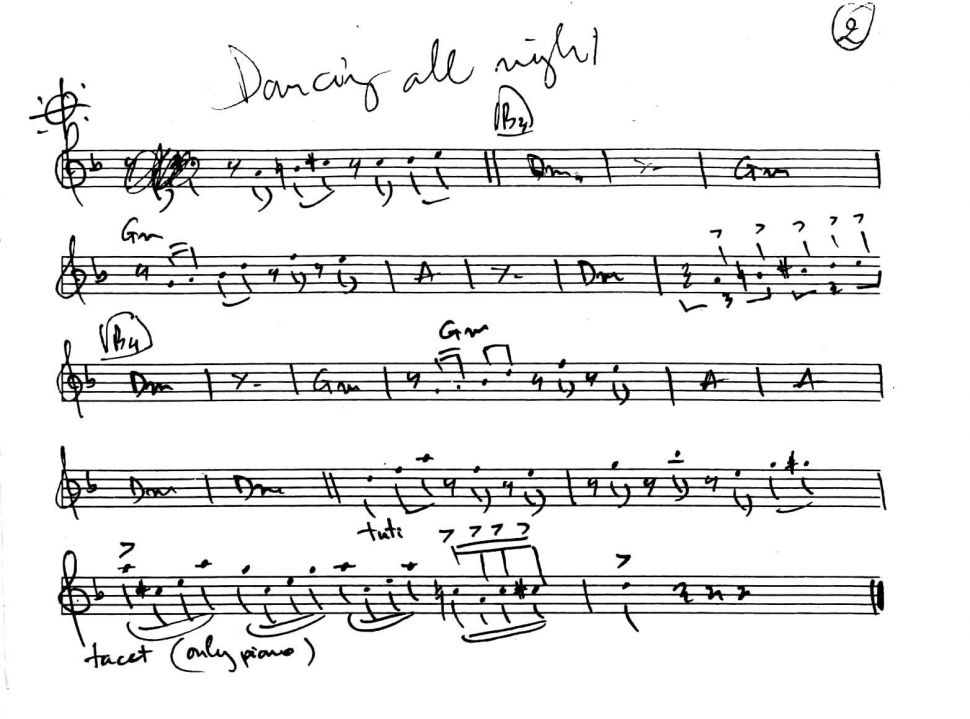 2
Dancing all night
Dm Gm
Gm
A Dm
3 2
Gm
Dm Gm A A
Dm Dm
tuti
tacet (only piano)